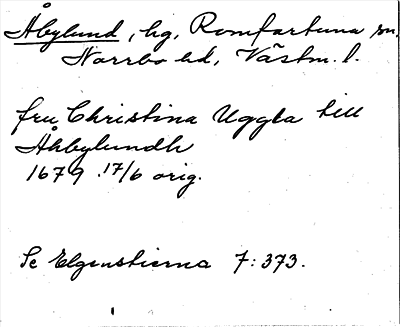 Åbylund, hg, Romfartuna sn.
Norrbo hd, Västm. l.
fru Christina Uggla till
Åhbylundh
1679 17/6 orig.
Se Elgenstierna 7:373.